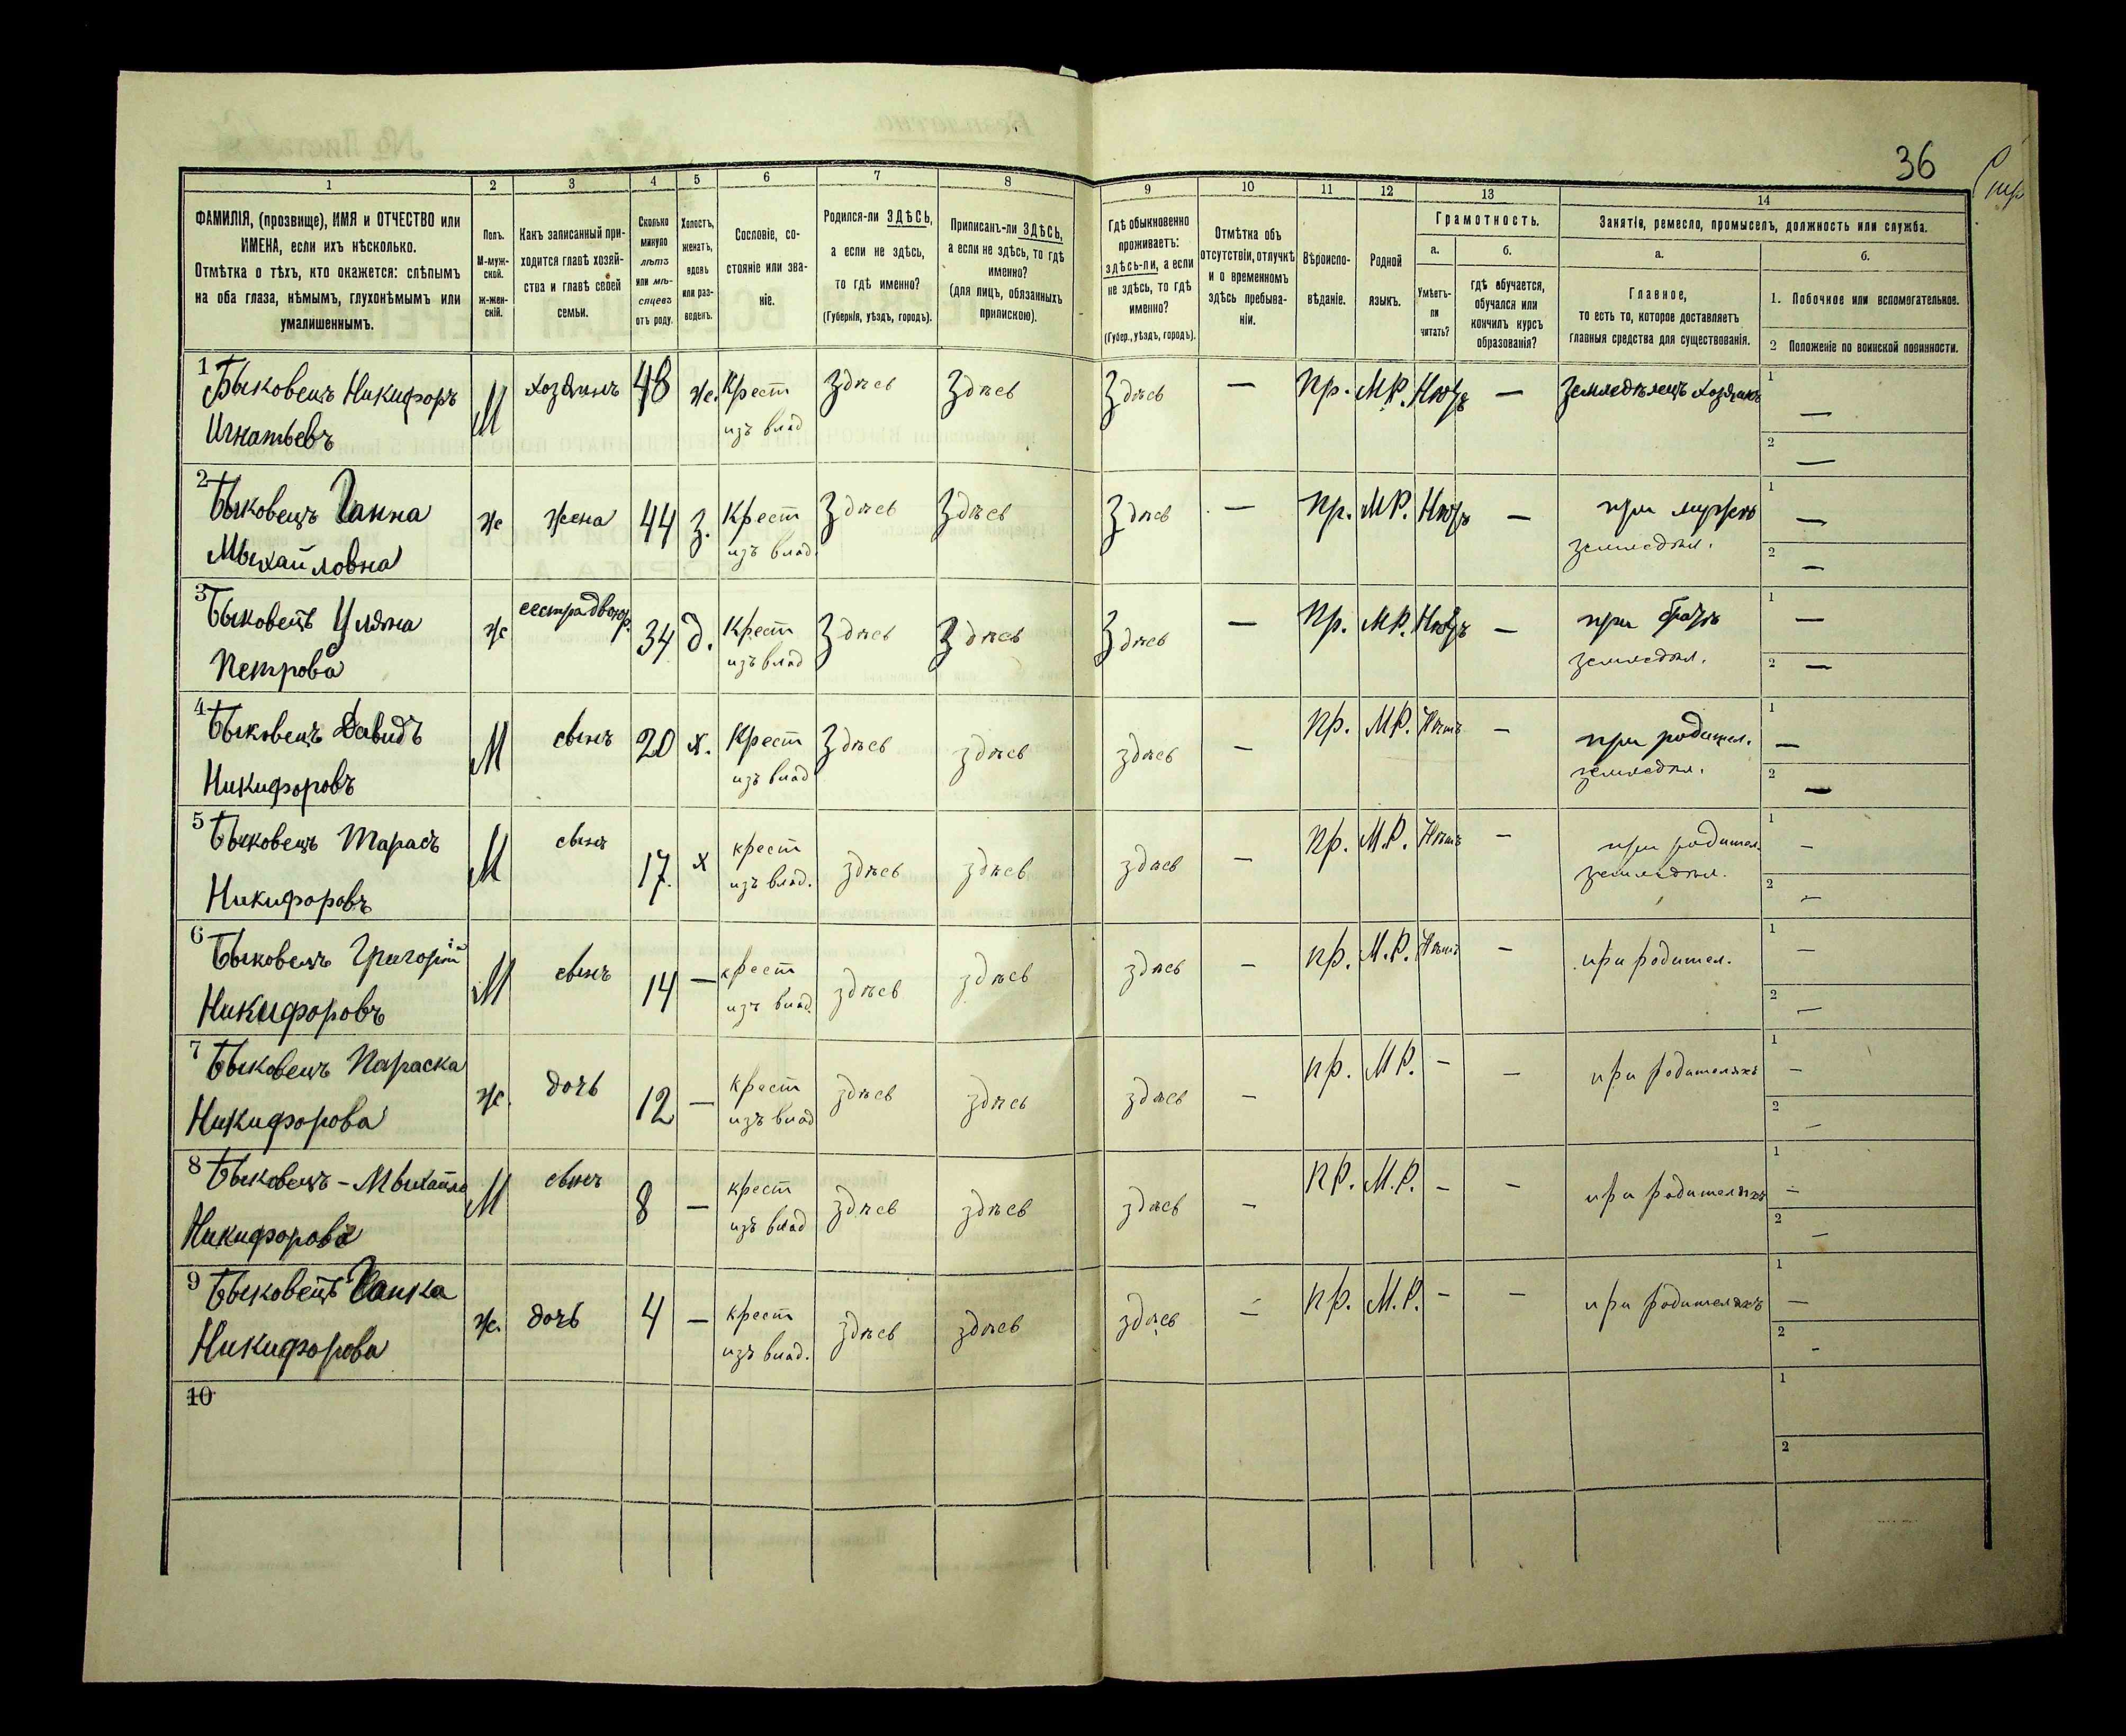 36
1 2 3 4 5 6 7 8 9 10 11 12 13 14
ФАМИЛІЯ, (прозвище), ИМЯ и ОТЧЕСТВО или
ИМЕНА, если ихъ нѣсколько.
Отмѣтка о тѣхъ, кто окажется: слѣпымъ
на оба глаза, нѣмымъ, глухонѣмымъ или
умалишеннымъ.
Полъ.
М-муж-
ской.
ж-жен-
скій.
Какъ записанный при-
ходится главѣ хозяй-
ства и главѣ своей
семьи.
Сколько
минуло
лѣтъ
или мѣ-
сяцевъ
отъ роду.
Холостъ,
женатъ,
вдовъ
или раз-
веденъ.
Сословіе, со-
стояніе или зва-
ніе.
Родился-ли ЗДѢСЬ,
а если не здѣсь,
то гдѣ именно?
(Губернія, уѣздъ, городъ).
Приписанъ-ли ЗДѢСЬ,
а если не здѣсь, то гдѣ
именно?
(для лицъ, обязанныхъ
припискою).
Гдѣ обыкновенно
проживаетъ:
здѣсь-ли, а если
не здѣсь, то гдѣ
именно?
(Губер., уѣздъ, городъ).
Отмѣтка объ
отсутствіи, отлучкѣ
и о временномъ
здѣсь пребыва-
ніи.
Вѣроиспо-
вѣданіе.
Родной
языкъ.
Грамотность.
а.
Умѣетъ-
ли
читать?
б.
гдѣ обучается,
обучался или
кончилъ курсъ
образованія?
Занятія, ремесло, промыселъ, должность или служба.
а.
Главное,
то есть то, которое доставляетъ
главныя средства для существованія.
б.
1. Побочное или вспомогательное.
2 Положеніе по воинской повинности.
1 Быковецъ Никифоръ М хозяинъ 48 ж. Крест здѣсь здѣсь здѣсь — Пр. М.Р. Нѣтъ — земледѣлецъ хозяинъ 1 —
Игнатьевъ изъ влад 2 —
2 Быковецъ Ганна ж жена 44 з. Крест здѣсь здѣсь здѣсь — Пр. М.Р. Нѣтъ — при мужѣ 1 —
Михайловна изъ влад. земледѣл. 2 —
3 Быковецъ Уляна ж сестра двоюр. 34 д. Крест здѣсь здѣсь здѣсь — Пр. М.Р. Нѣтъ — при братѣ 1 —
Петрова изъ влад земледѣл. 2 —
4 Быковецъ Давидъ М сынъ 20 х. Крест здѣсь здѣсь здѣсь — Пр. М.Р. Нѣтъ — при родител. 1 —
Никифоровъ изъ влад земледѣл. 2 —
5 Быковецъ Тарасъ М сынъ 17. х крест здѣсь здѣсь здѣсь — Пр. М.Р. Нѣтъ — при родител. 1 —
Никифоровъ изъ влад. земледѣл. 2 —
6 Быковецъ Григорій М сынъ 14 — крест здѣсь здѣсь здѣсь — пр. М.Р. Нѣтъ — при родител. 1 —
Никифоровъ изъ влад. 2 —
7 Быковецъ Параска ж. дочь 12 — крест здѣсь здѣсь здѣсь — пр. М.Р. — — при родителяхъ 1 —
Никифорова изъ влад 2 —
8 Быковецъ - Михайло М сынъ 8 — крест здѣсь здѣсь здѣсь — пр. М.Р. — — при родителяхъ 1 —
Никифоровъ изъ влад 2 —
9 Быковецъ Ганка ж. дочь 4 — крест здѣсь здѣсь здѣсь — пр. М.Р. — — при родителяхъ 1 —
Никифорова изъ влад. 2 -
10 1
2